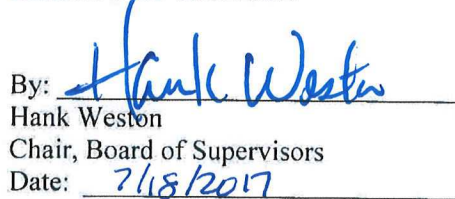 By: Hank Weston
Hank Weston
Chair, Board of Supervisors
Date: 7/18/2017